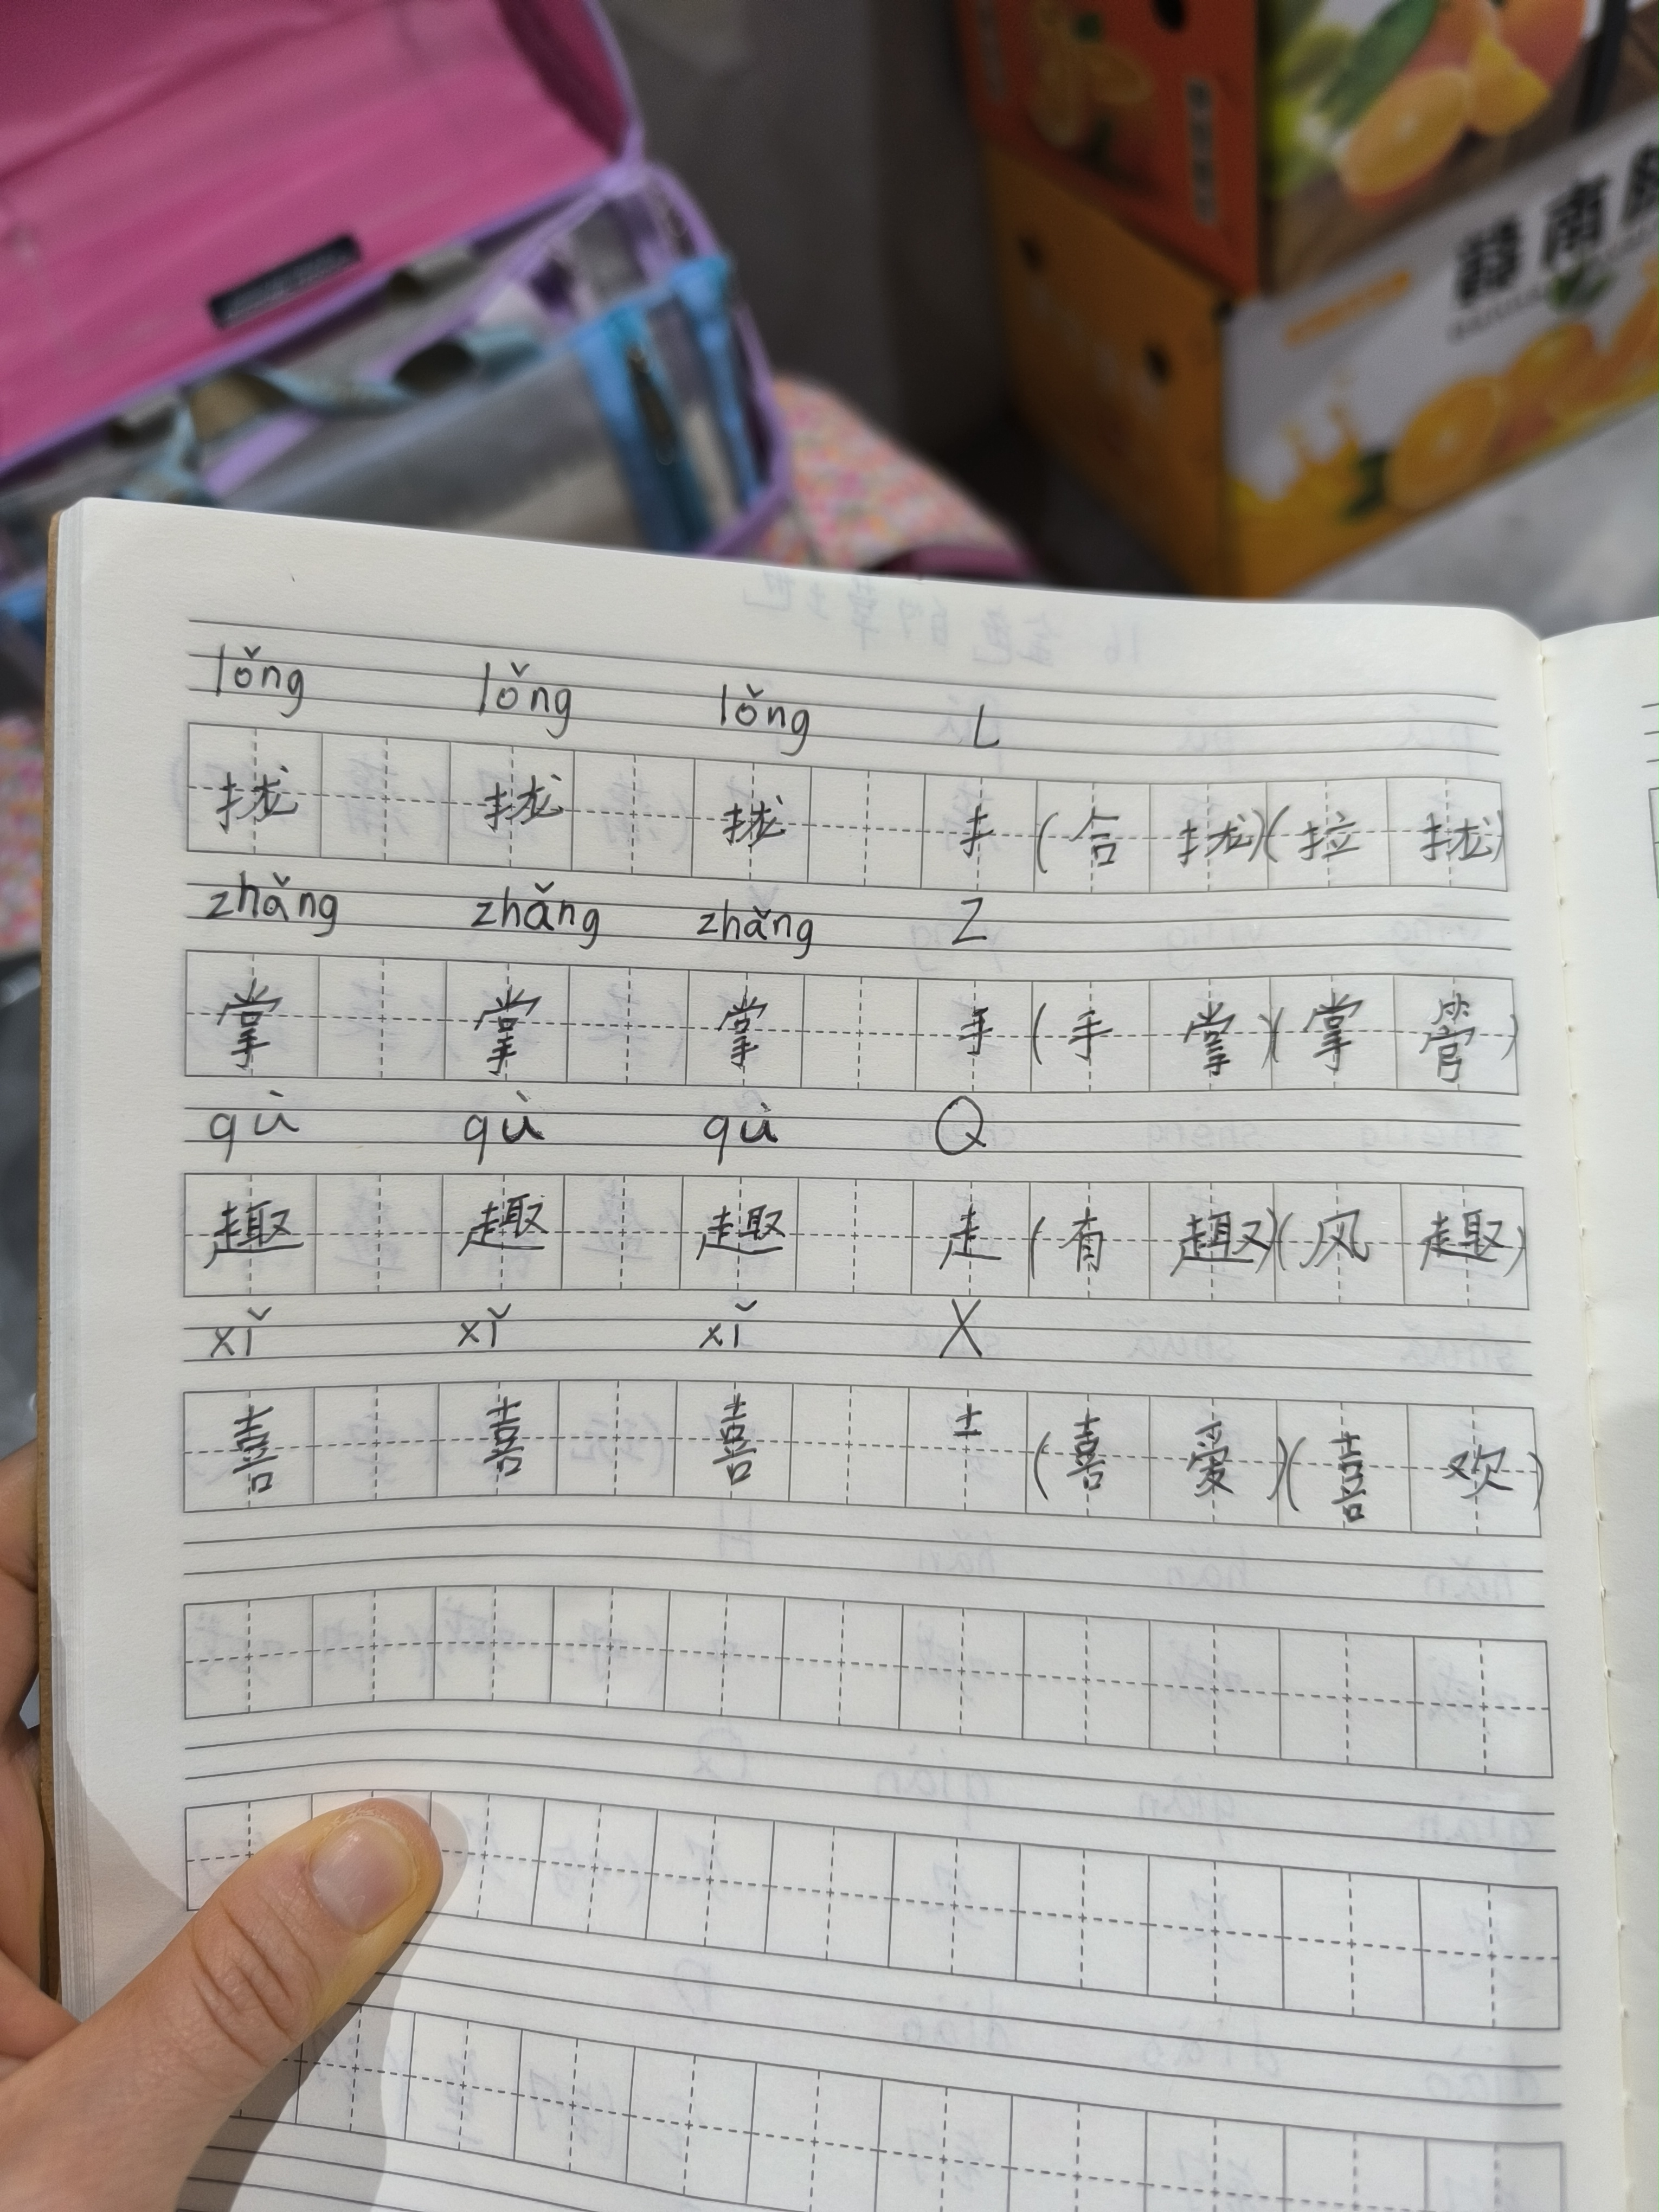 赣南脐
lǒng lǒng lǒng L
拢 拢 拢 扌 (合 拢)(拉 拢)
zhǎng zhǎng zhǎng Z
掌 掌 掌 手 (手 掌)(掌 管)
qù qù qù Q
趣 趣 趣 走 (有 趣)(风 趣)
xǐ xǐ xǐ X
喜 喜 喜 士 (喜 爱)(喜 欢)